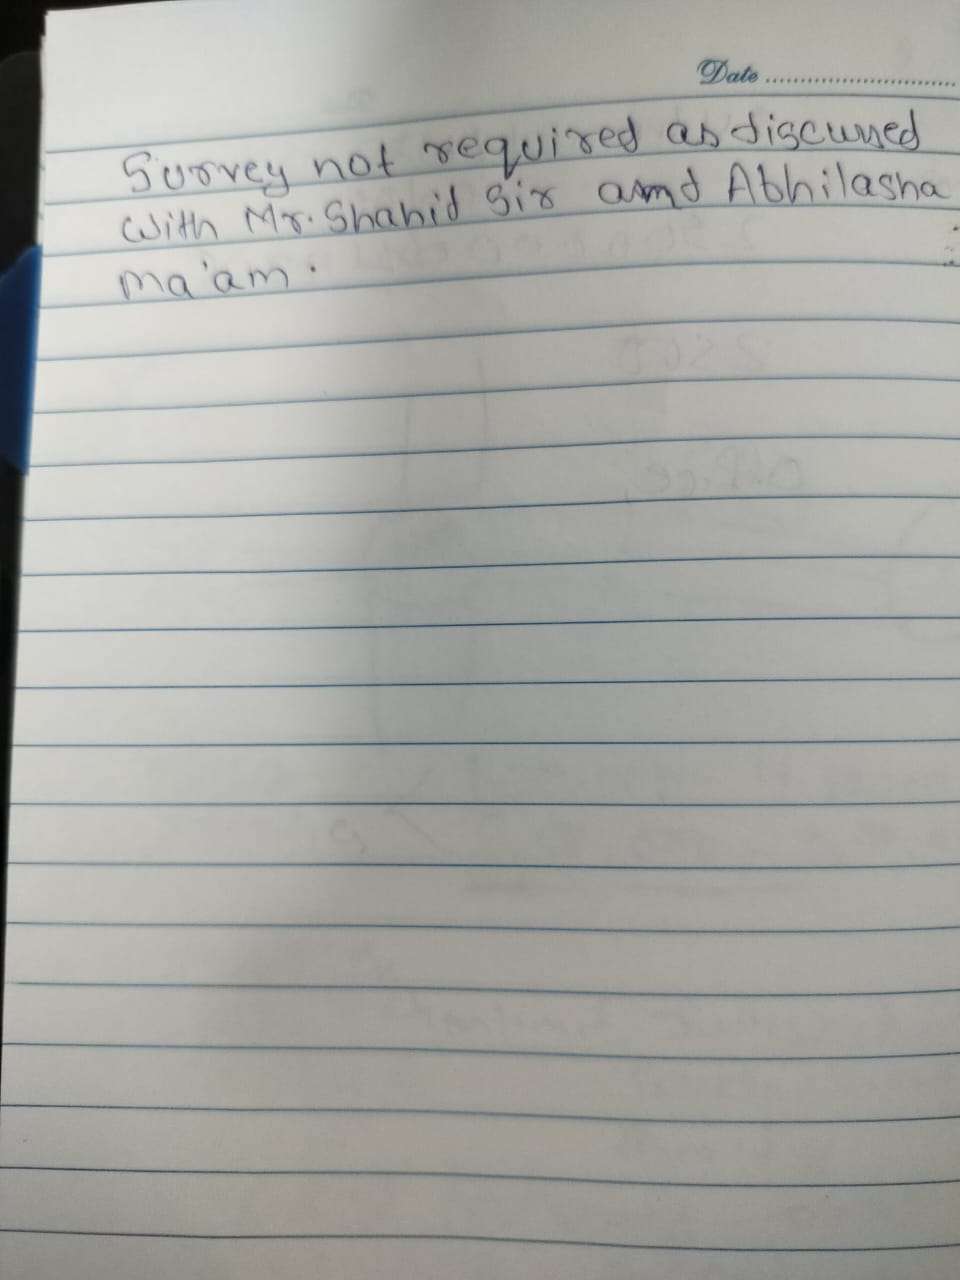 Date
Survey not required as discussed
with Mr. Shahid Sir and Abhilasha
ma'am.